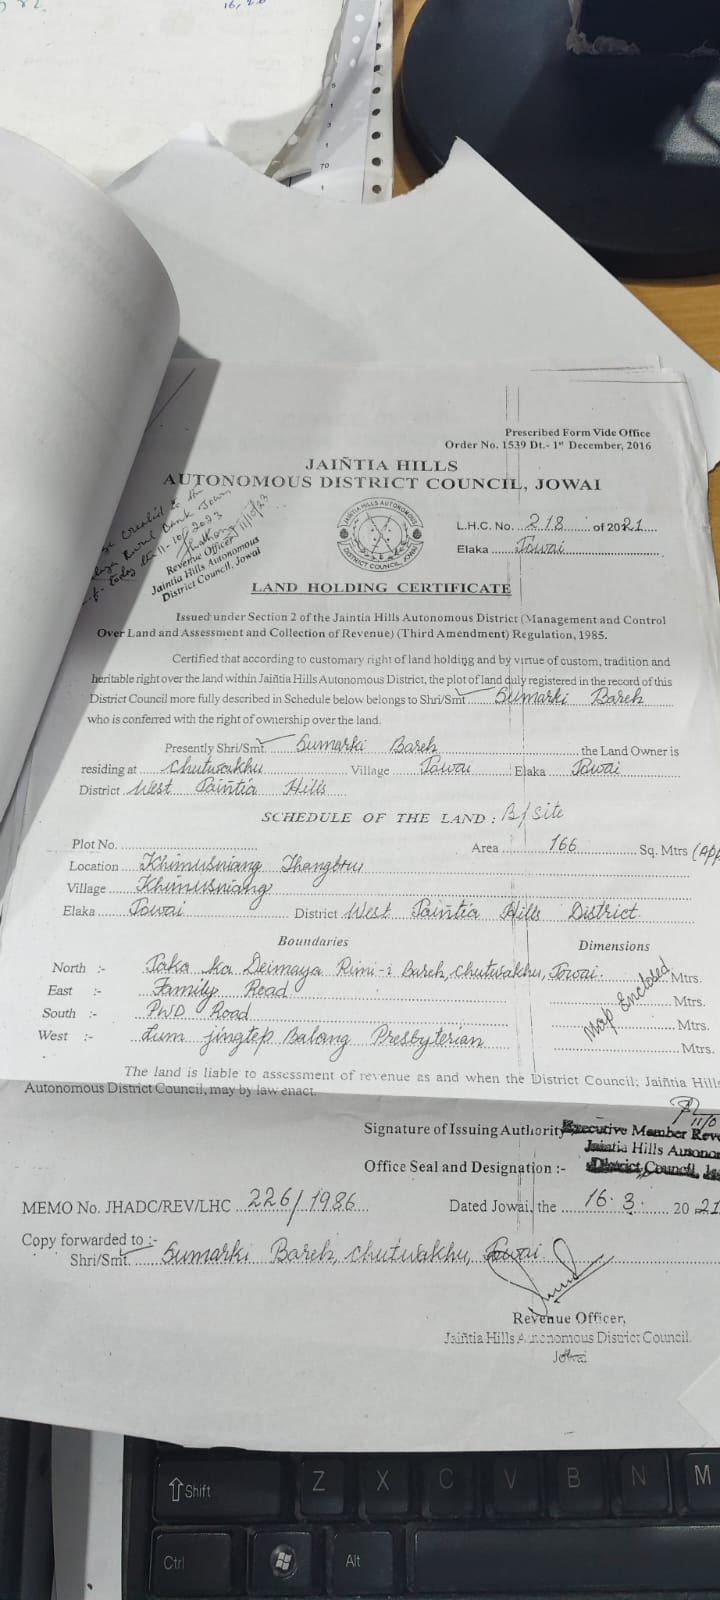 16,
70
Prescribed Form Vide Office
Order No. 1539 Dt.- 1st December, 2016
JAIÑTIA HILLS
AUTONOMOUS DISTRICT COUNCIL, JOWAI
created to the
Rural Bank Jowai
today the 11-10-2023
11/10/23
Revenue Officer
Jaintia Hills Autonomous
District Council, Jowai
JAIÑTIA HILLS AUTONOMOUS
DISTRICT COUNCIL, JOWAI
L.H.C. No. 218 of 2021
Elaka Jowai
LAND HOLDING CERTIFICATE
Issued under Section 2 of the Jaintia Hills Autonomous District (Management and Control
Over Land and Assessment and Collection of Revenue) (Third Amendment) Regulation, 1985.
Certified that according to customary right of land holding and by virtue of custom, tradition and
heritable right over the land within Jaiñtia Hills Autonomous District, the plot of land duly registered in the record of this
District Council more fully described in Schedule below belongs to Shri/Smt Sumarki Bareh
who is conferred with the right of ownership over the land.
Presently Shri/Smt. Sumarki Bareh the Land Owner is
residing at Chutwakhu Village Jowai Elaka Jowai
District West Jaiñtia Hills
SCHEDULE OF THE LAND : B/Site
Plot No. Area 166 Sq. Mtrs (App
Location Khimusniang Thangbru
Village Khimusniang
Elaka Jowai District West Jaiñtia Hills District
Boundaries Dimensions
North :- Jaka Ka Deimaya Rimi-i Bareh, Chutwakhu, Jowai. Mtrs.
East :- Family Road Mtrs.
South :- PWD Road Mtrs.
West :- Lum jingtep Balang Presbyterian Mtrs.
Map Enclosed
The land is liable to assessment of revenue as and when the District Council; Jaiñtia Hills
Autonomous District Council, may by law enact.
Signature of Issuing Authority Executive Member Reve
Jaintia Hills Autonom
Office Seal and Designation :- District Council,
MEMO No. JHADC/REV/LHC 226/1986 Dated Jowai, the 16.3. 2021
Copy forwarded to :-
Shri/Smt. Sumarki Bareh, Chutwakhu, Jowai.
Revenue Officer,
Jaiñtia Hills Autonomous District Council.
Jowai
Shift
Z
X
C
V
B
N
M
Ctrl
Alt